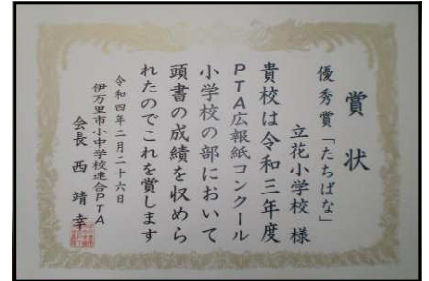 賞状
優秀賞「たちばな」
立花小学校 様
貴校は令和三年度
PTA広報紙コンクール
小学校の部において
頭書の成績を収めら
れたのでこれを賞します
令和四年二月二十六日
伊万里市小中学校連合PTA
会長 西 靖幸